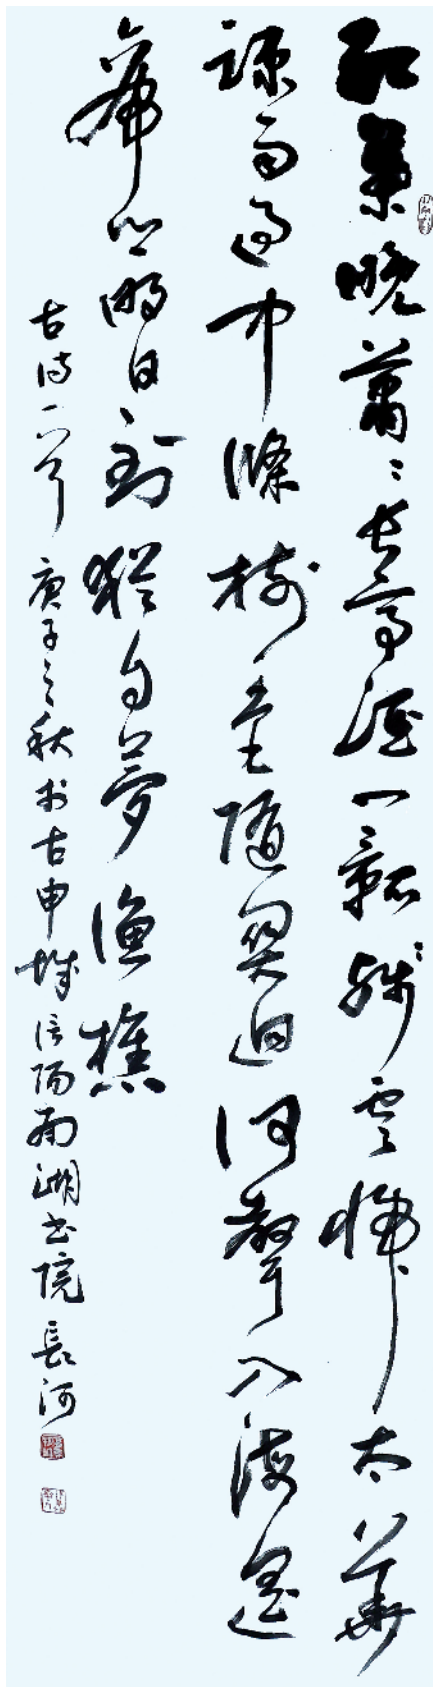 紅葉晚蕭〻長亭酒一瓢殘雲歸太華
疎雨過中條樹色随關迥河聲入海遥
帝鄉明日到猶自夢漁樵
古诗一首 庚子之秋於古申城信陽雨湖书院長河